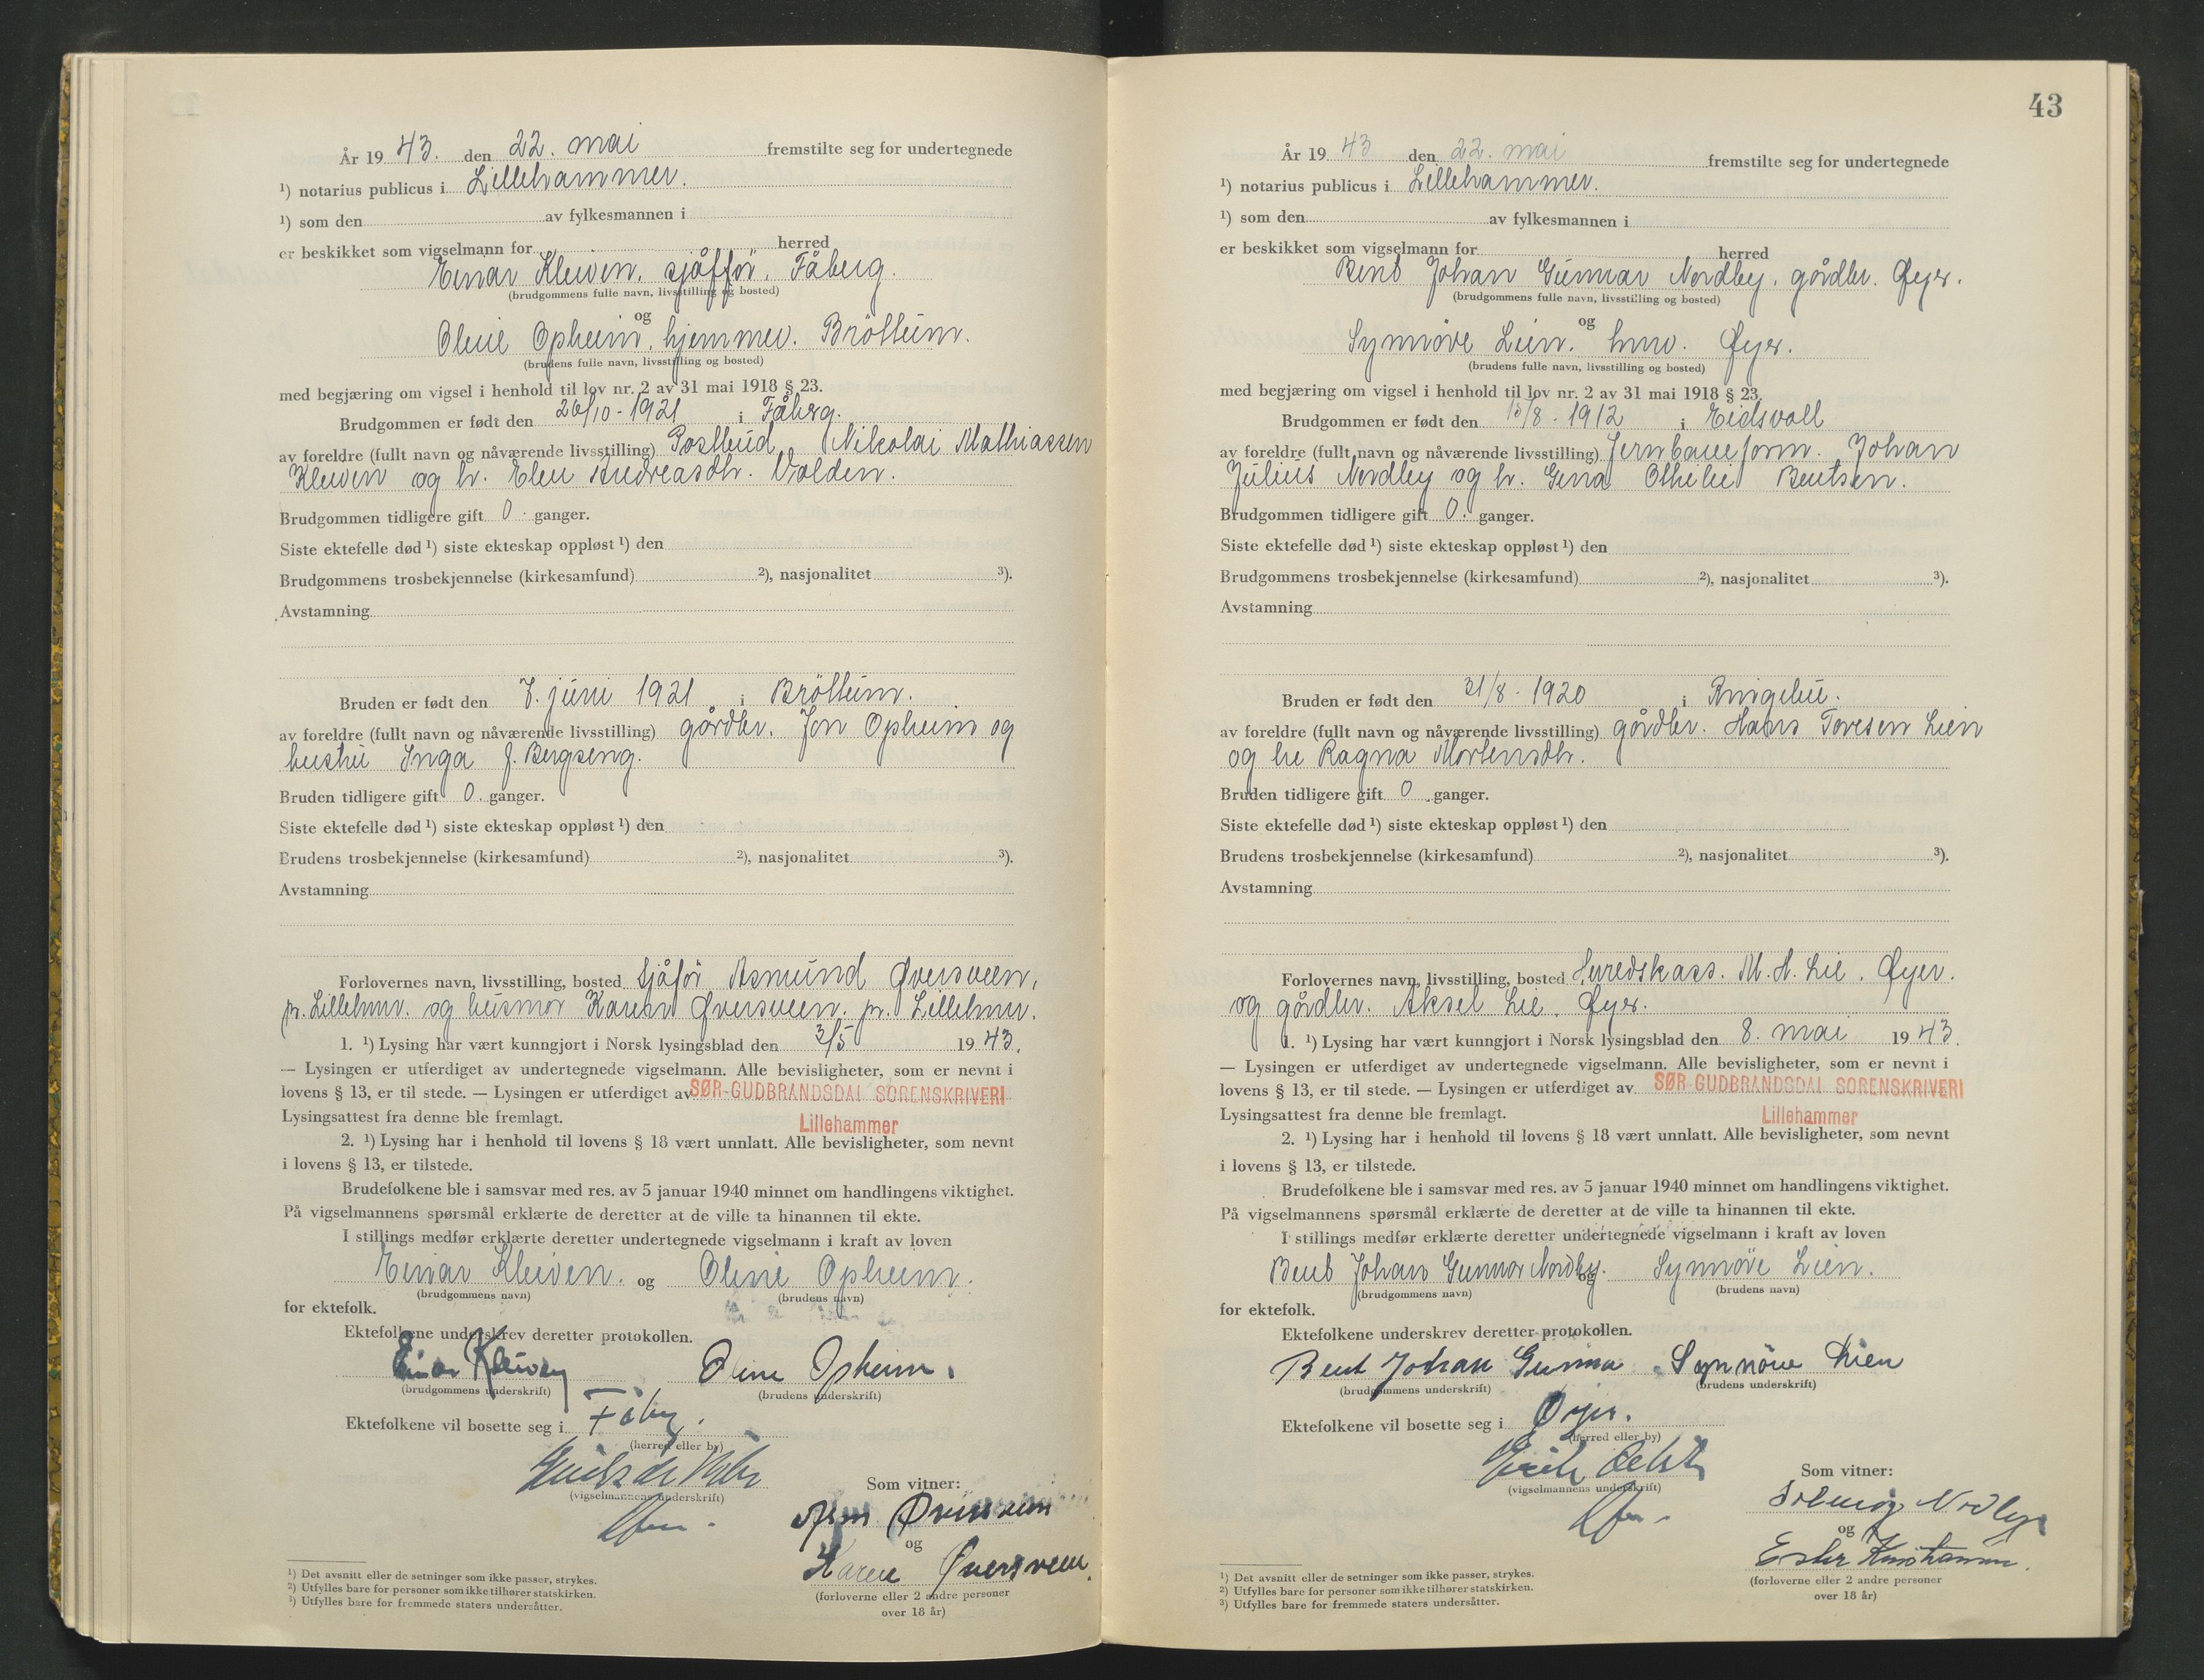 År 19 43. den 22. mai fremstilte seg for undertegnede
¹) notarius publicus i Lillehammer.
¹) som den av fylkesmannen i
er beskikket som vigselmann for herred
Einar Kleiven, sjåffør, Fåberg.
(brudgommens fulle navn, livsstilling og bosted)
og
Oline Opheim, hjemmev. Brøttum.
(brudens fulle navn, livsstilling og bosted)
med begjæring om vigsel i henhold til lov nr. 2 av 31 mai 1918 § 23.
Brudgommen er født den 26/10-1921 i Fåberg.
av foreldre (fullt navn og nåværende livsstilling) Postbud Nikolai Mathiassen
Kleiven og h. Elen Andreasdtr. Volden.
Brudgommen tidligere gift 0 ganger.
Siste ektefelle død ¹) siste ekteskap oppløst ¹) den
Brudgommens trosbekjennelse (kirkesamfund) ²), nasjonalitet ³).
Avstamning
Bruden er født den 7. juni 1921 i Brøttum.
av foreldre (fullt navn og nåværende livsstilling) gårdbr. Jon Opheim og
hustru Inga J. Bergseng.
Bruden tidligere gift 0. ganger.
Siste ektefelle død ¹) siste ekteskap oppløst ¹) den
Brudens trosbekjennelse (kirkesamfund) ²), nasjonalitet ³).
Avstamning
Forlovernes navn, livsstilling, bosted Sjåfør Asmund Øversveen,
pr. Lillehmr. og husmor Karen Øversveen. pr. Lillehmr.
1. ¹) Lysing har vært kunngjort i Norsk lysingsblad den 3/5 19 43.
— Lysingen er utferdiget av undertegnede vigselmann. Alle bevisligheter, som er nevnt i
lovens § 13, er til stede. — Lysingen er utferdiget av SØR-GUDBRANDSDAL SORENSKRIVERI
Lysingsattest fra denne ble fremlagt. Lillehammer
2. ¹) Lysing har i henhold til lovens § 18 vært unnlatt. Alle bevisligheter, som nevnt
i lovens § 13, er tilstede.
Brudefolkene ble i samsvar med res. av 5 januar 1940 minnet om handlingens viktighet.
På vigselmannens spørsmål erklærte de deretter at de ville ta hinannen til ekte.
I stillings medfør erklærte deretter undertegnede vigselmann i kraft av loven
Einar Kleiven. og Oline Opheim.
(brudgommens navn) (brudens navn)
for ektefolk.
Ektefolkene underskrev deretter protokollen.
Einar Kleiven Oline Opheim.
(brudgommens underskrift) (brudens underskrift)
Ektefolkene vil bosette seg i Fåbg.
(herred eller by)
(vigselmannens underskrift)
Som vitner:
Øversveen
og
Karen Øversveen.
(forloverne eller 2 andre personer
over 18 år)
¹) Det avsnitt eller de setninger som ikke passer, strykes.
²) Utfylles bare for personer som ikke tilhører statskirken.
³) Utfylles bare for fremmede staters undersåtter.
43
År 19 43 den 22. mai fremstilte seg for undertegnede
¹) notarius publicus i Lillehammer.
¹) som den av fylkesmannen i
er beskikket som vigselmann for herred
Bent Johan Gunnar Nordby, gårdbr. Øyer.
(brudgommens fulle navn, livsstilling og bosted)
og
Synnøve Lien. hmv. Øyer.
(brudens fulle navn, livsstilling og bosted)
med begjæring om vigsel i henhold til lov nr. 2 av 31 mai 1918 § 23.
Brudgommen er født den /8-1912 i Eidsvoll
av foreldre (fullt navn og nåværende livsstilling) Jernbaneform. Johan
Julius Nordby og h. Gina Othelie Bentsen.
Brudgommen tidligere gift 0. ganger.
Siste ektefelle død ¹) siste ekteskap oppløst ¹) den
Brudgommens trosbekjennelse (kirkesamfund) ²), nasjonalitet ³).
Avstamning
Bruden er født den 21/8-1920 i Ringebu.
av foreldre (fullt navn og nåværende livsstilling) gårdbr. Hans Toresen Lien
og hu Ragna Mortensdtr.
Bruden tidligere gift 0 ganger.
Siste ektefelle død ¹) siste ekteskap oppløst ¹) den
Brudens trosbekjennelse (kirkesamfund) ²), nasjonalitet ³).
Avstamning
Forlovernes navn, livsstilling, bosted Herredskass. M. H. Lie. Øyer.
og gårdbr. Aksel Lie. Øyer.
1. ¹) Lysing har vært kunngjort i Norsk lysingsblad den 8. mai 19 43.
— Lysingen er utferdiget av undertegnede vigselmann. Alle bevisligheter, som er nevnt i
lovens § 13, er til stede. — Lysingen er utferdiget av SØR-GUDBRANDSDAL SORENSKRIVERI
Lysingsattest fra denne ble fremlagt. Lillehammer
2. ¹) Lysing har i henhold til lovens § 18 vært unnlatt. Alle bevisligheter, som nevnt
i lovens § 13, er tilstede.
Brudefolkene ble i samsvar med res. av 5 januar 1940 minnet om handlingens viktighet.
På vigselmannens spørsmål erklærte de deretter at de ville ta hinannen til ekte.
I stillings medfør erklærte deretter undertegnede vigselmann i kraft av loven
Bent Johan Gunnar Nordby. og Synnøve Lien.
(brudgommens navn) (brudens navn)
for ektefolk.
Ektefolkene underskrev deretter protokollen.
Bent Johan Gunnar Synnöve Lien
(brudgommens underskrift) (brudens underskrift)
Ektefolkene vil bosette seg i Øyer.
(herred eller by)
(vigselmannens underskrift)
Som vitner:
Solveig Nordby
og
Ester
(forloverne eller 2 andre personer
over 18 år)
¹) Det avsnitt eller de setninger som ikke passer, strykes.
²) Utfylles bare for personer som ikke tilhører statskirken.
³) Utfylles bare for fremmede staters undersåtter.